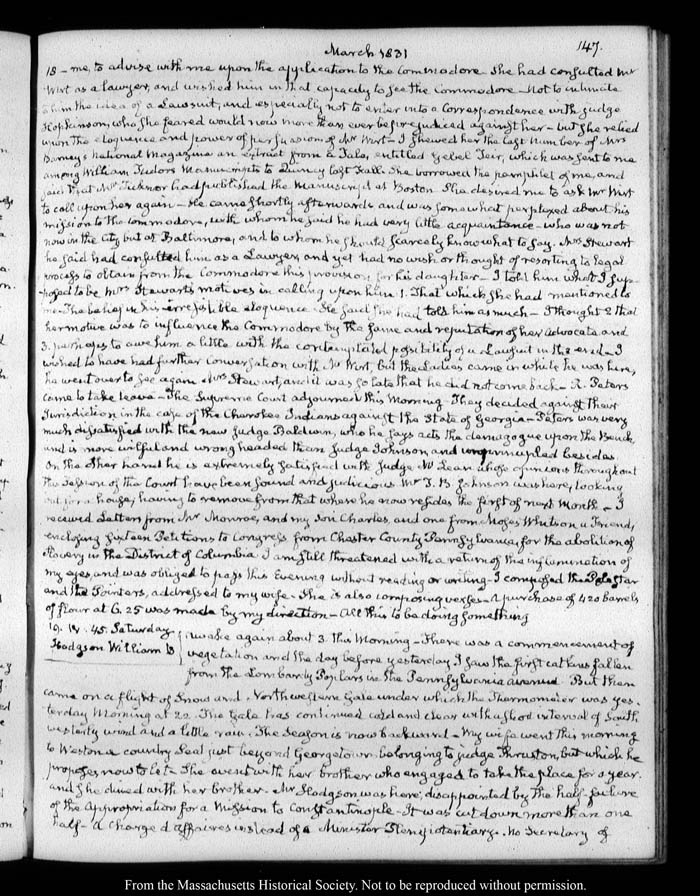 147.
March 1831
18 – me, to advise with me upon the application to the Commodore – She had consulted Mr
Wirt as a Lawyer, and wished him in that capacity to see the Commodore – Not to intimate
to him the idea of a Lawsuit, and especially not to enter into a Correspondence with judge
Hopkinson, who she feared would now more than ever be prejudiced against her – but she relied
upon the eloquence and power of persuasion of Mr Wirt – I shewed her the last number of Mrs
Barney's National Magazine an extract from a Tale, entitled Gebel Teir, which was sent to me
among William Tudor's Manuscripts to Quincy last Fall. She borrowed the pamphlet of me, and
said that Mr Ticknor had published the Manuscript at Boston She desired me to ask Mr Wirt
to call upon her again – He came shortly afterwards and was somewhat perplexed about his
mission to the Commodore, with whom he said he had very little acquaintance – who was not
now in the City but at Baltimore, and to whom he should scarcely know what to say. Mrs Stewart
he said had consulted him as a Lawyer, and yet had no wish or thought of resorting to legal
process to obtain from the Commodore this provision for his daughter – I told him what I sup-
posed to be Mrs Stewart's motives in calling upon him 1. That which she had mentioned to
me – The belief in his irresistible eloquence – He said she had told him as much – I thought 2 that
her motive was to influence the Commodore by the fame and reputation of her Advocate and
3. perhaps to awe him a little with the contemplated possibility of a Lawsuit in the end – I
wished to have had further Conversation with Mr Wirt, but the Ladies came in while he was here,
he went over to see again Mrs Stewart, and it was so late that he did not come back – R. Peters
came to take leave – The Supreme Court adjourned this Morning – They decided against their
Jurisdiction in the case of the Cherokee Indians against the State of Georgia – Peters was very
much dissatisfied with the new Judge Baldwin, who he says acts the demagogue upon the Bench,
and is more wilful and wrong headed than Judge Johnson, and unprincipled besides
On the other hand he is extremely satisfied with Judge McLean whose opinions throughout
the Session of the Court have been sound and judicious Mr J. B Johnson was here, looking
out for a house, having to remove from that where he now resides the first of next Month – I
received Letters from Mr Monroe, and my Son Charles, and one from Moses Whitson a Friend,
enclosing sixteen Petitions to Congress from Chester County Pennsylvania, for the abolition of
slavery in the District of Columbia I am still threatened with a return of the inflammation of
my eyes, and was obliged to pass this Evening without reading or writing – I composed the Pole Star
and the Pointers, addressed to my wife – She is also composing verses – A purchase of 420 barrels
of flour at 6.25 was made by my direction – All this to be doing something
19. IV. 45. Saturday
Hodgson William B
I awoke again about 3. this Morning – There was a commencement of
vegetation and the day before yesterday I saw the first catkins fallen
from the Lombardy Poplars in the Pennsylvania avenue But then
came on a flight of Snow and Northwestern Gale under which the Thermometer was yes-
terday Morning at 22. The Gale has continued cold and clear with a short interval of South
westerly wind and a little rain. The Season is now backward – My wife went this morning
to Weston a country Seat just beyond Georgetown belonging to judge Thruston, but which he
proposes now to let – She went with her brother who engaged to take the place for a year.
and she dined with her brother. Mr Hodgson was here; disappointed by the half-failure
of the Appropriation for a Mission to Constantinople – It was cut down more than one
half – a Chargé d'affaires instead of a Minister Plenipotentiary. No Secretary of
From the Massachusetts Historical Society. Not to be reproduced without permission.